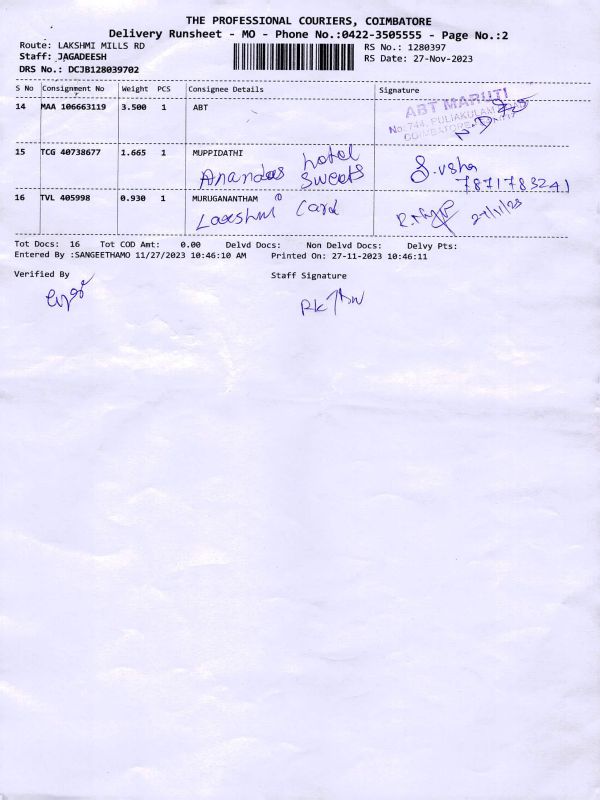 THE PROFESSIONAL COURIERS, COIMBATORE
Delivery Runsheet - MO - Phone No.:0422-3505555 - Page No.:2
Route: LAKSHMI MILLS RD
RS No.: 1280397
Staff: JAGADEESH
RS Date: 27-Nov-2023
DRS No.: DCJB128039702
S No Consignment No Weight PCS Consignee Details Signature
14 MAA 106663119 3.500 1 ABT
ABT MARUTI
No. 744, PULIAKULAM
COIMBATORE
15 TCG 40738677 1.665 1 MUPPIDATHI
hotel
Anandas Sweets
S. Usha
7871783241
16 TVL 405998 0.930 1 MURUGANANTHAM
Lakshmi Card
27/11/23
Tot Docs: 16 Tot COD Amt: 0.00 Delvd Docs: Non Delvd Docs: Delvy Pts:
Entered By :SANGEETHAMO 11/27/2023 10:46:10 AM Printed On: 27-11-2023 10:46:11
Verified By Staff Signature